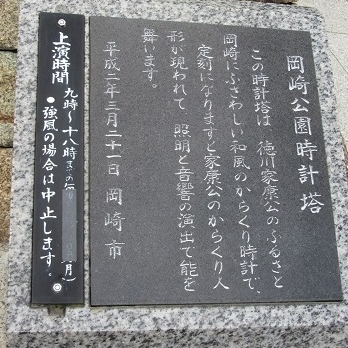 岡崎公園時計塔
この時計塔は、徳川家康公のふるさと
岡崎にふさわしい和風のからくり時計で、
定刻になりますと家康公のからくり人
形が現われて、照明と音響の演出で能を
舞います。
平成二年三月二十一日 岡崎市
上演時間
九時〜十八時
●強風の場合は中止します。